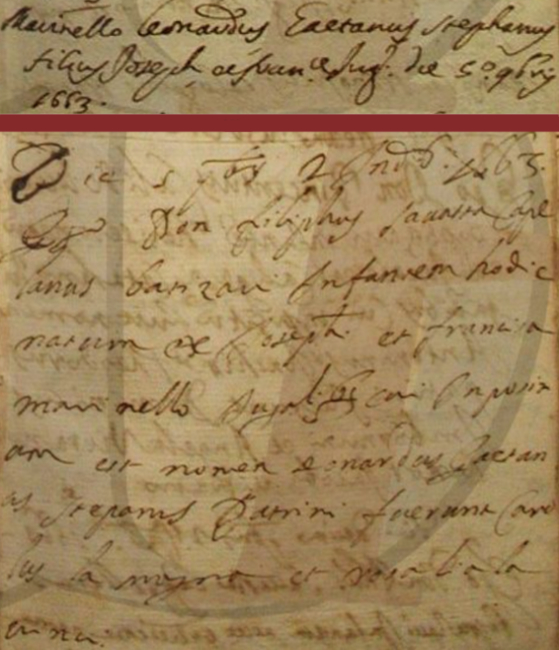 Marinello Leonardus Gaetanus Stephanus
filius Joseph et Fran.ce Jug. die 5.º 9bris
1663.
Die 5 9bris 2 Ind. 1663.
Ego Don Filiphus Cape
lanus batizavi Infantem hodie
natum ex Joseph et francisca
mari nello Jugalibus cui Inposit
um est nomen Leonardus Gaetan
us Stepanus Patrini fuerunt Caro
lus la magna et rosalia la